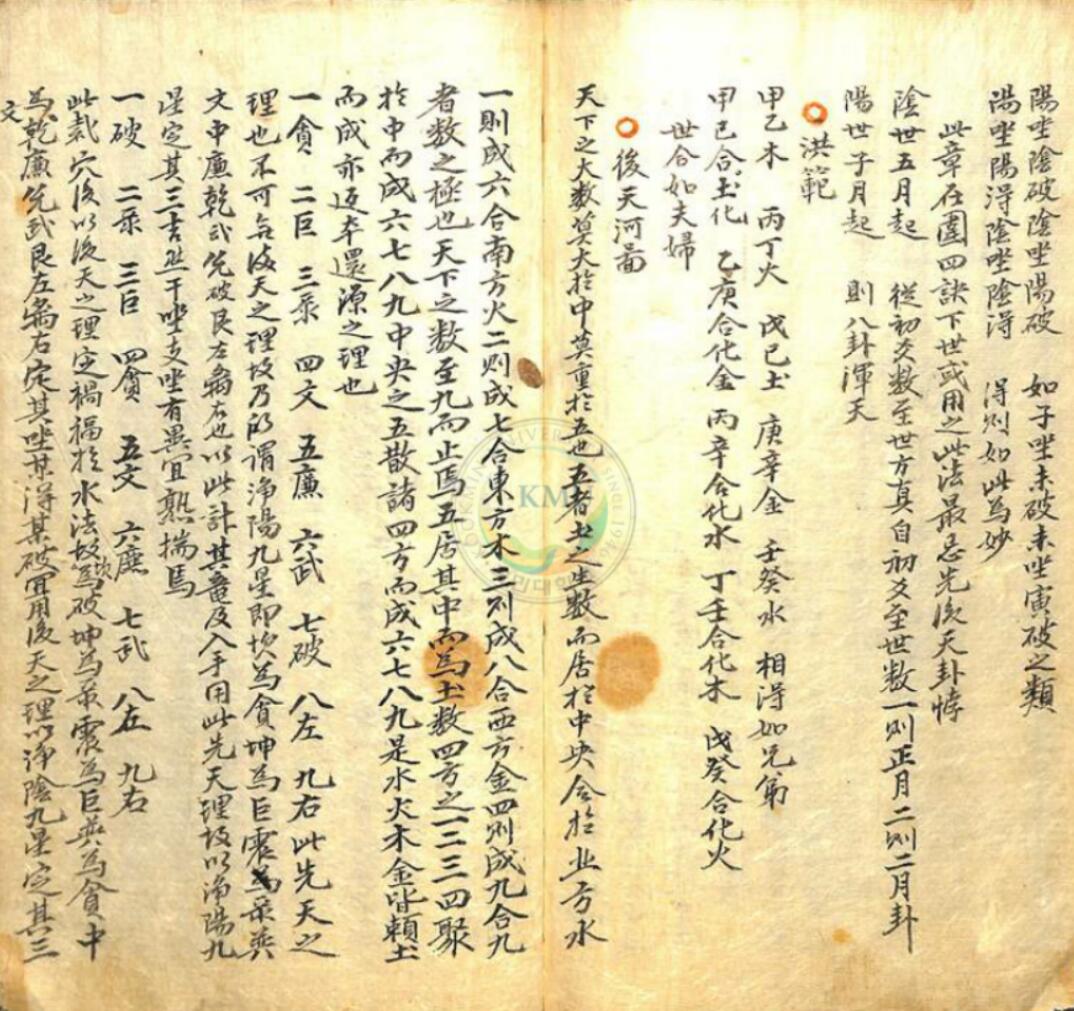 陽坐陰破陰坐陽破 如子坐未破未坐寅破之類
陽坐陽得陰坐陰得 得則如此為妙
此章在圖四訣下世或用之此法最忌先後天卦悖
陰世五月起 從初爻数至世方真自初爻至世数一则正月二则二月卦
陽世子月起 則八卦渾天
洪範
甲乙木 丙丁火 戊己土 庚辛金 壬癸水 相得如兄弟
甲己合土化 乙庚合化金 丙辛合化水 丁壬合化木 戊癸合化火
世合如夫婦
後天河圖
天下之大数莫大於中莫重於五也五者土之生数而居於中央合於北方水
一則成六合南方火二則成七合東方木三則成八合西方金四則成九合九
者数之極也天下之数至九而止焉五居其中而為土数四方之一二三四聚
於中而成六七八九中央之五散諸四方而成六七八九是水火木金皆賴土
而成亦返本還源之理也
一貪 二巨 三彔 四文 五廉 六武 七破 八左 九右此先天之
理也不可無後天之理故乃所謂净陽九星即坎為貪坤為巨震為彔巽
文中廉乾武兌破艮左离右也以此計其竜及入手用此先天理故以净陽九
星定其三吉然干坐支坐有異宜熟揣焉
一破 二彔 三巨 四貪 五文 六廉 七武 八左 九右
此裁穴後以後天之理定禍福於水法故坎為破坤為彔震為巨巽為貪中
為文乾廉兌武艮左离右定其坐某得某破宜用後天之理以净陰九星定其三
KOOKMIN UNIVERSITY SINCE 1946
KM